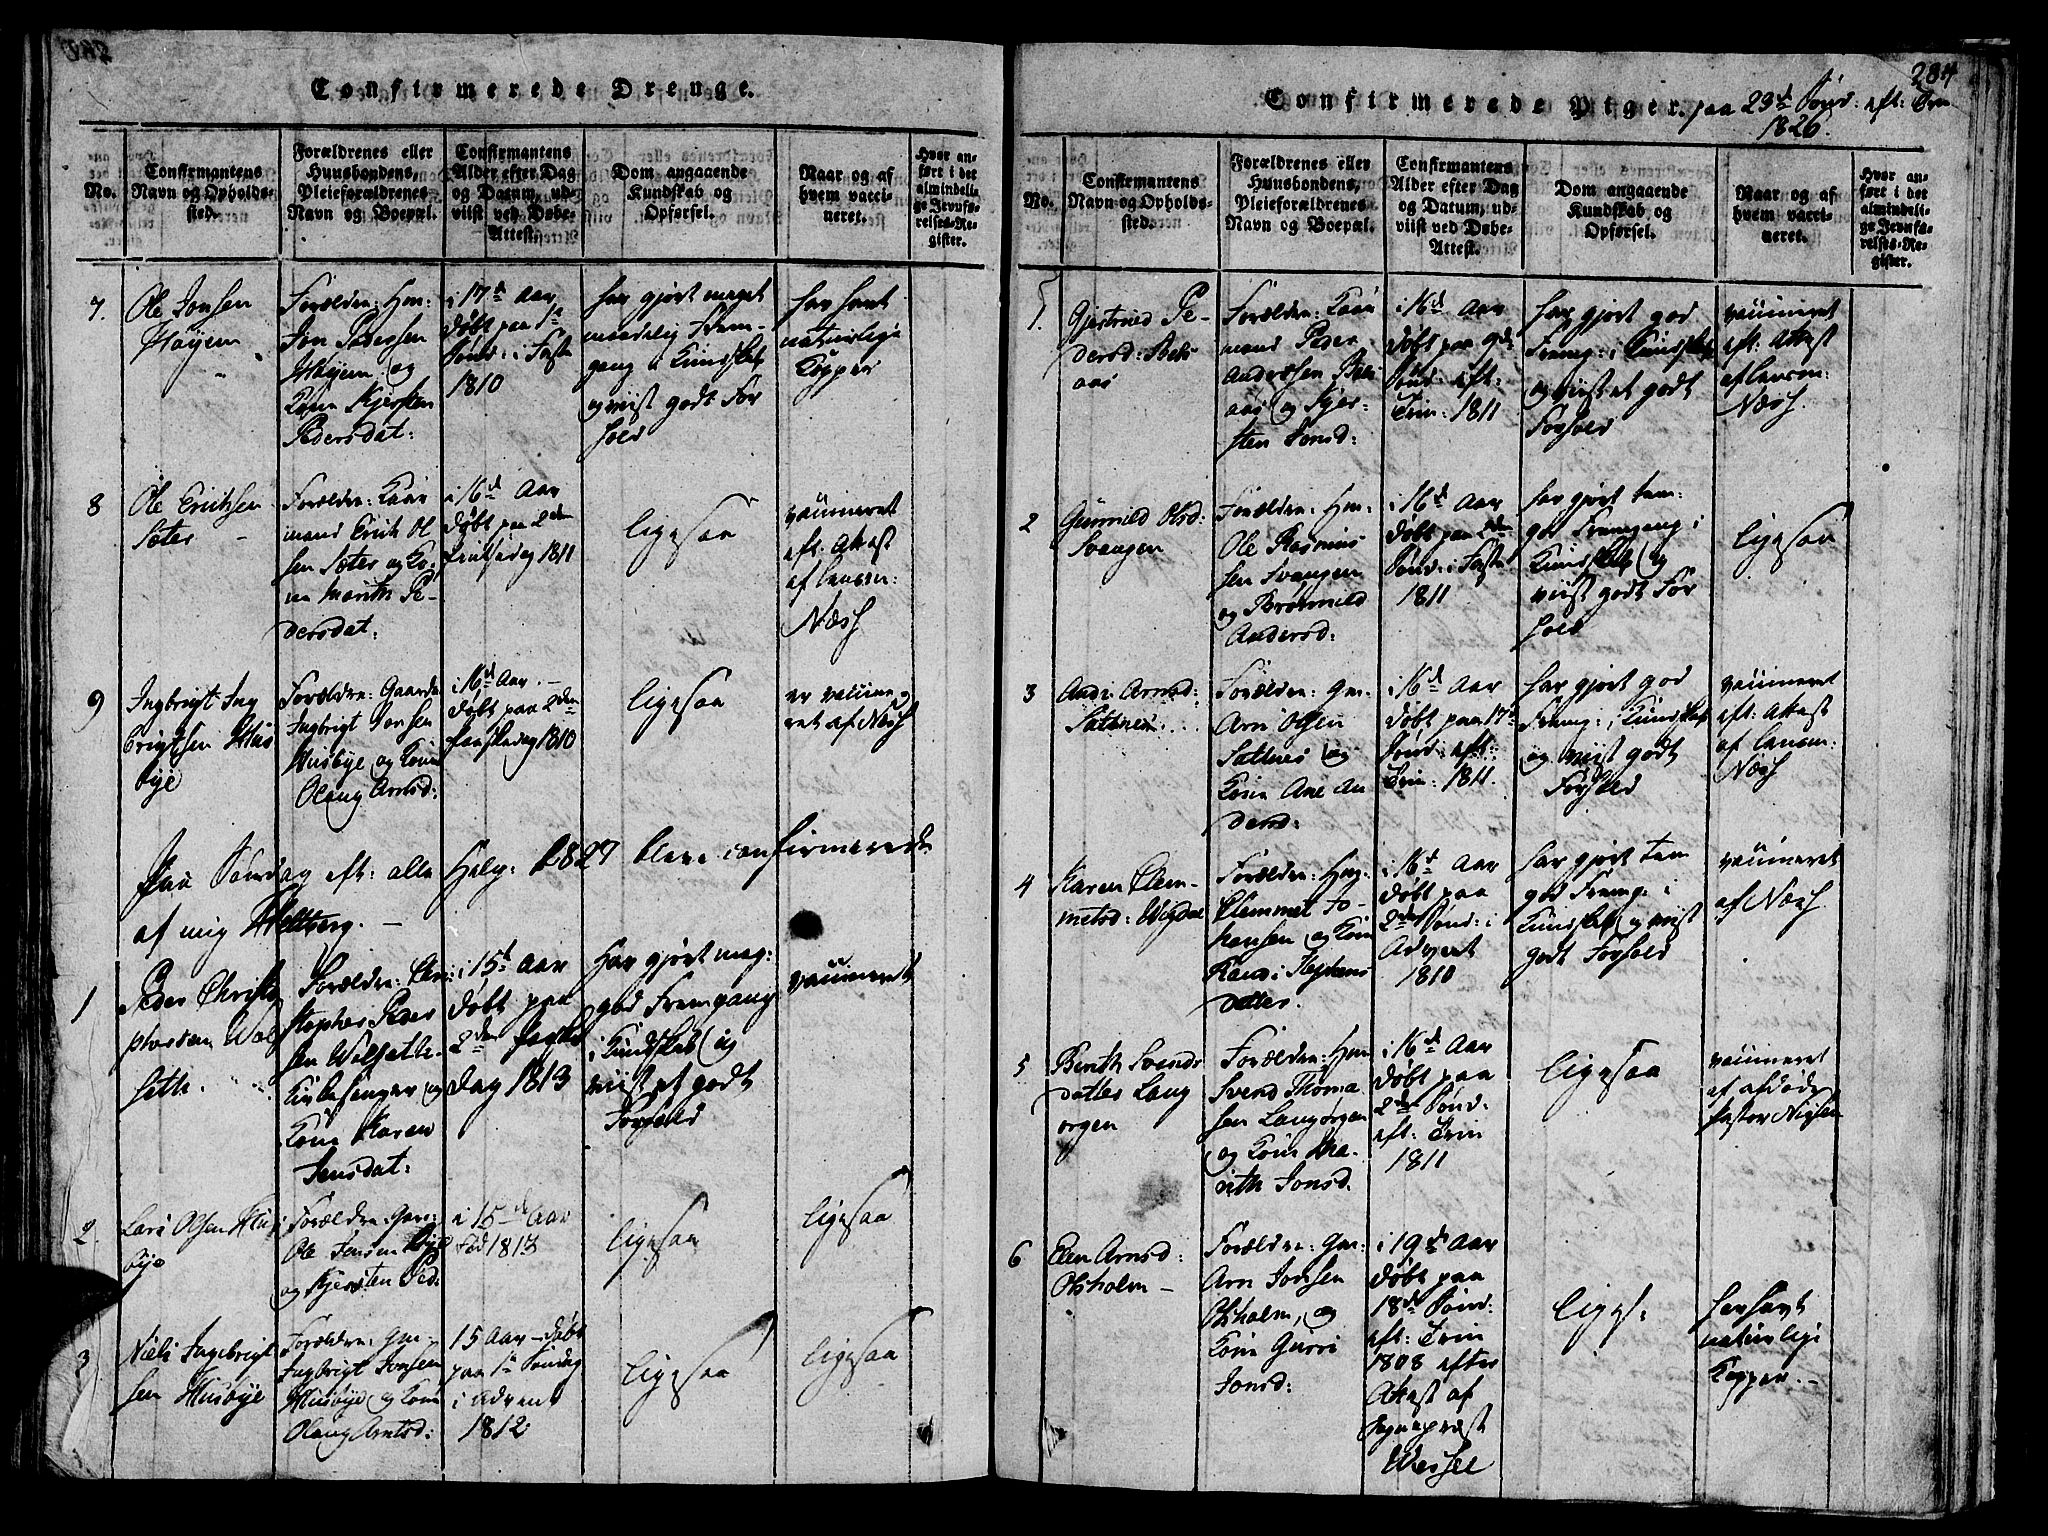 Confirmerede Drenge.
No.
Confirmantens
Navn og Opholds-
sted.
Forældrenes eller
Huusbondens,
Pleieforældrenes
Navn og Boepæl.
Confirmantens
Alder efter Dag
og Datum, ud-
viist ved Døbe-
Attest.
Dom angaaende
Kundskab og
Opførsel.
Naar og af
hvem vacci-
neret.
Hvor an-
ført i det
almindeli-
ge Jevnfø-
relses-Re-
gister.
7.
Ole Jonsen
Høyem
Forældre:
Jon Pedersen
Høyem og
Kone Kjersten
Pedersdat:
i 17d Aar
døbt paa 1d
Sønd: i Faste
1810
har gjort meget
maadelig Frem-
gang i Kundskab
og viist godt For
hold
har havt
naturlige
Kopper
8
Ole Erichsen
Sæter
Forældre: Huus
mand Erich Ol
sen Sæter og Ko-
ne Marith Pe-
dersdat:
i 16d Aar
døbt paa 2den
1811
ligesaa
vaccineret
eft: Attest
af
Næss
9
Ingbrigt Ing
brigtsen Hus
bye
Forældre: Gaardm
Ingbrigt Jonsen
Husbye og Kone
Olaug Arnsd:
i 16d Aar.
døbt paa 2den
Paaskedag 1810
ligesaa
er vaccine
ret af Næss
Paa Søndag eft: alle Helg: 1827 bleve confirmerede
af mig Heltberg.
1
Peder Christo
phersen Wol
seth.
Forældre: Chri
stopher Peder
sen Wolseth
Kirkesanger og
Kone Karen
Jensdat:
i 15d Aar
døbt paa
2den Paaske
dag 1813
Har gjort meg:
god Fremgang
i Kundskab og
viist et godt
Forhold
vaccineret
2
Lars Olsen Hus
bye
Forældre: Gm:
Ole Jensen Bye
og Kjersten Ped:
i 15de Aar
fød 1813
ligesaa
ligesaa
3
Niels Ingebrigt
sen Husbye
Forældre: Gm-
Ingbrigt Jonsen
Husbye og Kone
Olaug Arntsd:
15 Aar - døbt
paa 1ste Søndag
i Advent
1812
ligesaa
ligesaa
284
Confirmerede Piger. paa 23d Sønd: eft: Trin
1826.
No.
Confirmantens
Navn og Opholds-
sted.
Forældrenes eller
Huusbondens,
Pleieforældrenes
Navn og Boepæl.
Confirmantens
Alder efter Dag
og Datum, ud-
viist ved Døbe-
Attest.
Dom angaaende
Kundskab og
Opførsel.
Naar og af
hvem vacci-
neret.
Hvor an-
ført i det
almindeli-
ge Jevnfø-
relses-Re-
gister.
1.
Gjertrud Pe-
dersd:
Forældre: Huus
mand Peder
Andersen
og Kjer-
sten Jonsd:
i 16d Aar
døbt paa 9de
Sønd: eft:
Trin: 1811
har gjort god
Fremg: i Kundskab
og viist et godt
Forhold
vaccineret
eft: Attest
af
Næss.
2
Gunnild Olsd:
Svangen
Forældre:
Ole Rasmus
sen Svangen
og Brønnild
Andersd:
i 16d Aar
døbt paa 2den
Sønd: i Faste
1811
har gjort tem:
god Fremgang i
Kundskab og
viist godt For
hold
ligesaa
3
Arnsd:
Sættnes
Forældre: Gm.
Arn Olsen
Sættnes og
Kone Ane An
dersd:
i 16d Aar
døbt paa 17de
Sønd: eft:
Trin: 1811.
har gjort god
Fremg: i Kundskab
og viist godt
Forhold
vaccineret
eft: Attest
af
Næss
4
Karen Clem-
metsd:
Forældre:
Clemmet Jo-
hansen og Kone
Stephens
datter.
i 16d Aar
døbt paa
2den Sønd: i
Advent
1810
har gjort tem
god Fremg: i
Kundskab og viist
godt Forhold
vaccineret
af Næss.
5
Berith Svends
datter Laug
orgen
Forældre:
Svend Thoma
sen Laugorgen
og Kone Ma-
rith Jonsd.
i 16d Aar
døbt paa
2den Sønd.
eft: Trin
1811
ligesaa
vaccineret
af afdøde
Pastor
6
Elen Arnsd:
Olsholm -
Forældre: Gm:
Arn Jonsen
Olsholm, og
Kone Gurri
Jonsd:
i 19d Aar
døbt paa
18d Sønd:
eft: Trin
1808 efter
Attest af
Sognepræst
Wessel
liges:
har havt
naturlige
Kopper.-